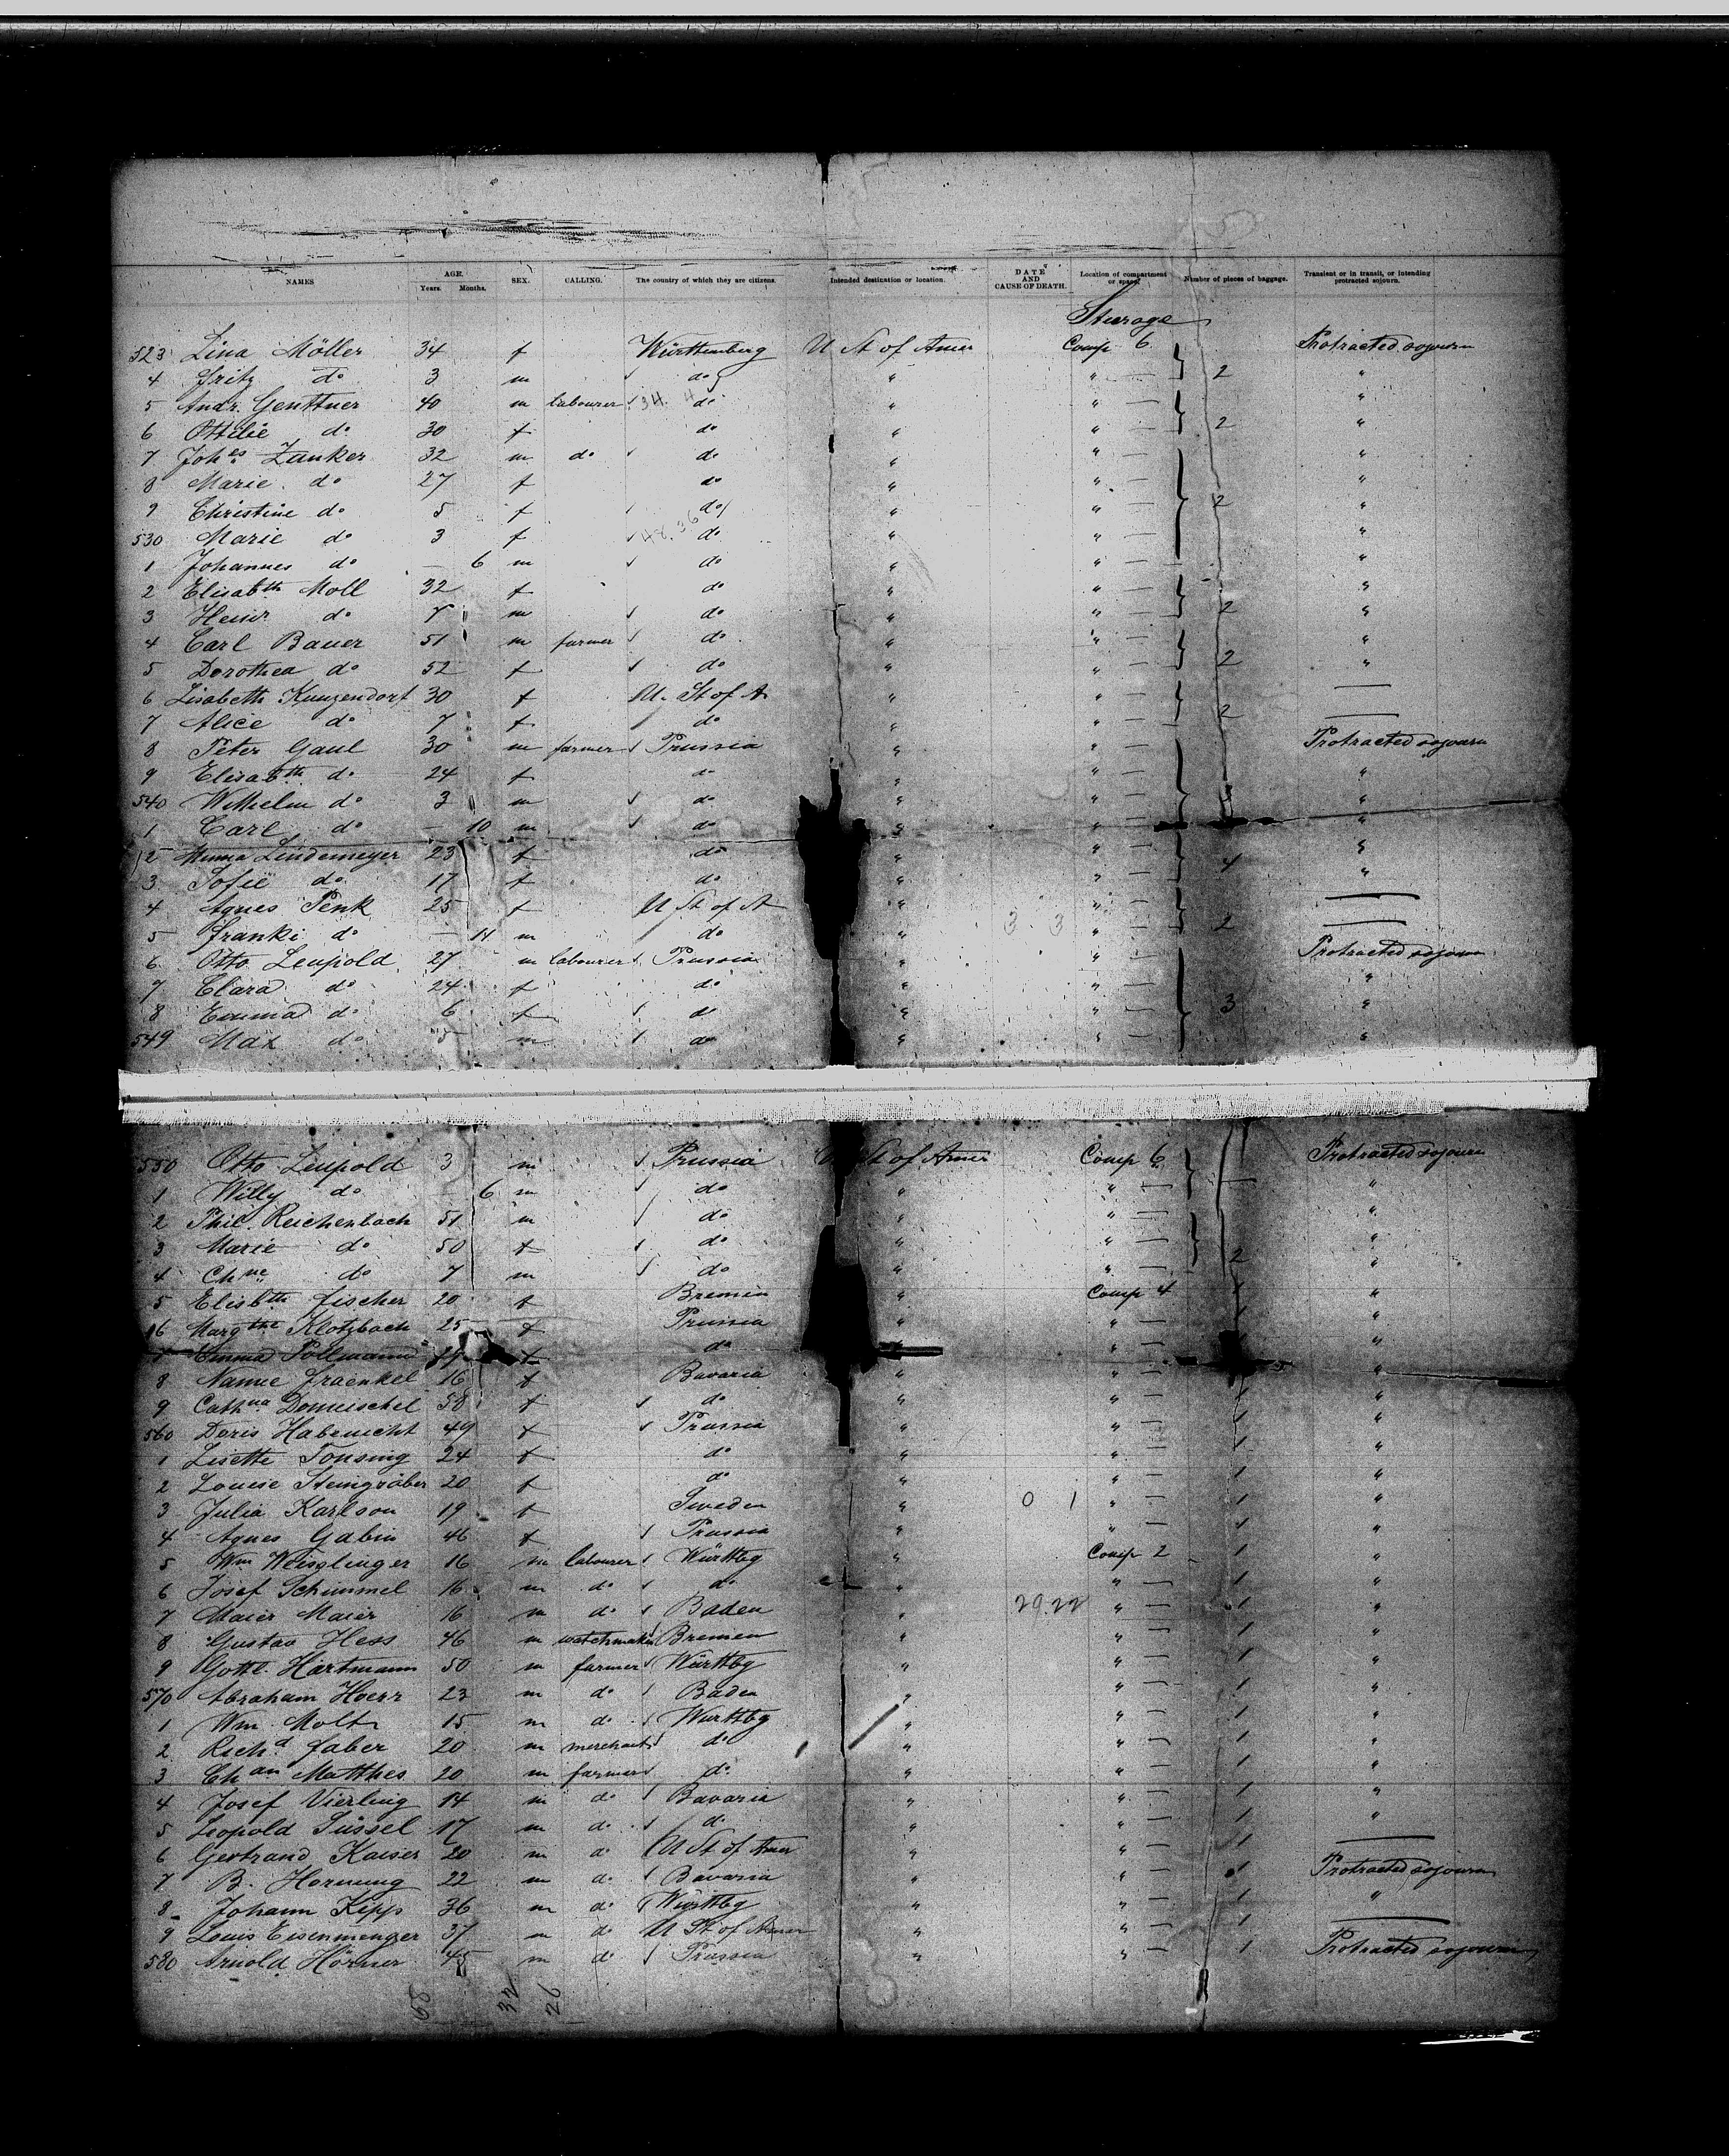 NAMES AGE. Years. Months. SEX. CALLING. The country of which they are citizens. Intended destination or location. DATE AND CAUSE OF DEATH. Location of compartment or space. Number of pieces of baggage. Transient or in transit, or intending protracted sojourn.
Steerage
523 Lina Möller 34 f Württemberg U St of Amer Comp 6 Protracted sojourn
4 Fritz do 3 m do " " — 2 "
5 Andr. Genttner 40 m labourer do " " — "
6 Ottilie do 30 f do " " — 2 "
7 Johes Zanker 32 m do do " " — "
8 Marie do 27 f do " " — "
9 Christine do 5 f do " " — 2 "
530 Marie do 3 f do " " — "
1 Johannes do — 6 m do " " — "
2 Elisabth Moll 32 f do " " — "
3 Heinr do 7 m do " " — 2 "
4 Carl Bauer 51 m farmer do " " — "
5 Dorothea do 52 f do " " — 2 "
6 Lisabeth Kunzendorf 30 f U. St of A " " — —
7 Alice do 7 f do " " — 2 —
8 Peter Gaul 30 m farmer Prussia " " — Protracted sojourn
9 Elisabth do 24 f do " " — "
540 Wilhelm do 3 m do " " — "
1 Carl do — 10 m do " " — "
2 Minna Lindemeyer 23 f do " " — 4 "
3 Sofie do 17 f do " " — "
4 Agnes Penk 25 f U St of A " " — —
5 Franki do — 11 m do " 3 3 " — 2 —
6 Otto Leupold 27 m labourer Prussia " " — Protracted sojourn
7 Clara do 24 f do " " — "
8 Emma do 6 f do " " — 3 "
549 Max do 5 m do " " — "
550 Otto Leupold 3 m Prussia U St of Amer Comp 6 Protracted sojourn
1 Willy do — 6 m do " " — "
2 Phil. Reichenbach 51 m do " " — "
3 Marie do 50 f do " " — "
4 Chne do 7 m do " " — 2 "
5 Elisbth Fischer 20 f Bremen " Comp 4 1 "
6 Margthe Klotzbach 25 f Prussia " " — 1 "
7 Emma Pollmann f do " " — "
8 Nannie Fraenkel 16 f Bavaria " " — "
9 Cathna Domeischel 58 f do " " — 1 "
560 Doris Habenicht 49 f Prussia " " — 1 "
1 Lisette Tonsing 24 f do " " — 1 "
2 Louise Steingräber 20 f do " " — 1 "
3 Julia Karlson 19 f Sweden " 0 1 " — 1 "
4 Agnes Gabin 46 f Prussia " " — 1 "
5 Wm Weisslinger 16 m labourer Württbg " Comp 2 1 "
6 Josef Schimmel 16 m do do " " — 1 "
7 Maier Maier 16 m do Baden " 29.22 " — 1 "
8 Gustav Hess 46 m watchmaker Bremen " " — 1 "
9 Gottl. Hartmann 50 m farmer Württbg " " — 1 "
570 Abraham Hoerr 23 m do Baden " " — 1 "
1 Wm Molt 15 m do Württbg " " — 1 "
2 Richd Faber 20 m merchant do " " — 1 "
3 Chan Matthes 20 m farmer do " " — 1 "
4 Josef Vierling 14 m do Bavaria " " — 1 "
5 Leopold Süssel 17 m do do " " — 1 "
6 Gertrand Kaiser 20 m do U St of Amer " " — 1 —
7 B. Hornung 22 m do Bavaria " " — 1 Protracted sojourn
8 Johann Kipp 36 m do Württbg " " — 1 "
9 Louis Eisenmenger 37 m do U St of Amer " " — 1 —
580 Arnold Hörner 45 m do Prussia " " — 1 Protracted sojourn
58 32 26